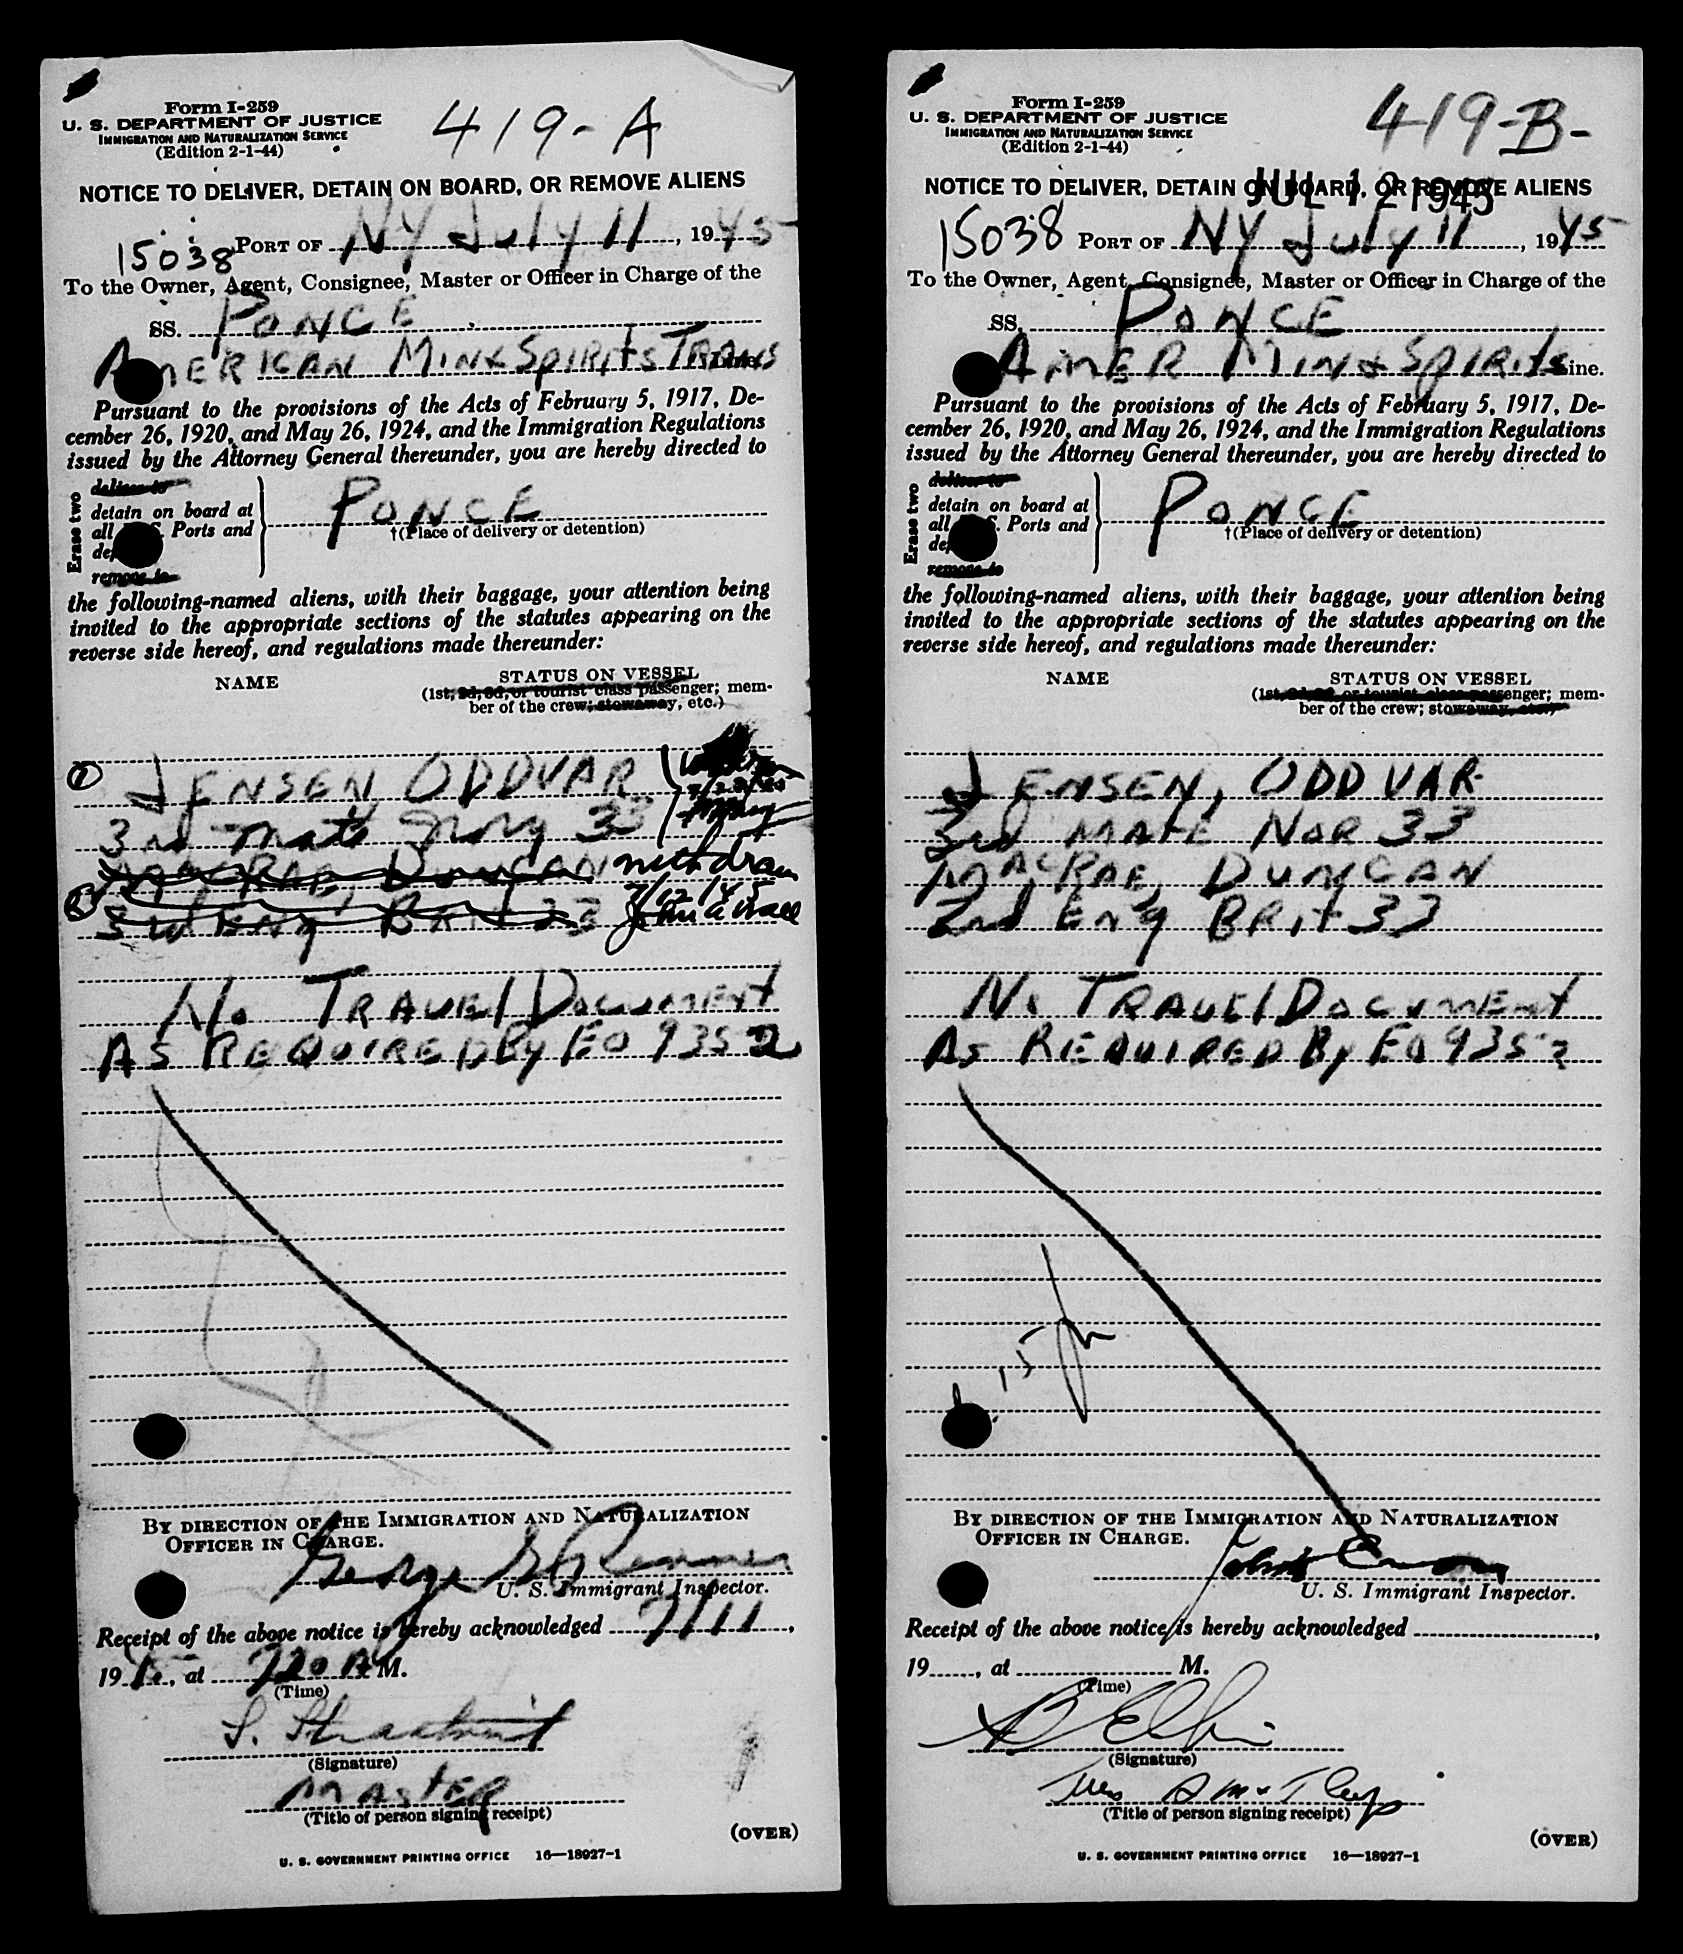 Form I-259
U. S. DEPARTMENT OF JUSTICE
IMMIGRATION AND NATURALIZATION SERVICE
(Edition 2-1-44)
419-A
NOTICE TO DELIVER, DETAIN ON BOARD, OR REMOVE ALIENS
15038 PORT OF NY July 11, 1945
To the Owner, Agent, Consignee, Master or Officer in Charge of the
SS. PONCE
AMERICAN MIN & SPIRITS TRANS Line.
Pursuant to the provisions of the Acts of February 5, 1917, De-
cember 26, 1920, and May 26, 1924, and the Immigration Regulations
issued by the Attorney General thereunder, you are hereby directed to
Erase two
deliver to
detain on board at
all U. S. Ports and
remove to
PONCE
†(Place of delivery or detention)
the following-named aliens, with their baggage, your attention being
invited to the appropriate sections of the statutes appearing on the
reverse side hereof, and regulations made thereunder:
NAME
STATUS ON VESSEL
(1st, 2d, 3d, or tourist class passenger; mem-
ber of the crew; stowaway, etc.)
1 JENSEN ODDVAR
3rd Mate 33
MACRAE, DUNCAN withdrawn
2 Eng Brit 33 7/12/45
No TRAVEL DOCUMENT
AS REQUIRED By EO 9352
BY DIRECTION OF THE IMMIGRATION AND NATURALIZATION
OFFICER IN CHARGE.
George
U. S. Immigrant Inspector.
Receipt of the above notice is hereby acknowledged 7/11,
1945, at 720 A M.
(Time)
(Signature)
MASTER
(Title of person signing receipt)
(OVER)
U. S. GOVERNMENT PRINTING OFFICE 16—18927-1
Form I-259
U. S. DEPARTMENT OF JUSTICE
IMMIGRATION AND NATURALIZATION SERVICE
(Edition 2-1-44)
419-B-
NOTICE TO DELIVER, DETAIN ON BOARD, OR REMOVE ALIENS
JUL 12 1945
15038 PORT OF NY July 11, 1945
To the Owner, Agent, Consignee, Master or Officer in Charge of the
SS. PONCE
AMER MIN & SPIRITS Line.
Pursuant to the provisions of the Acts of February 5, 1917, De-
cember 26, 1920, and May 26, 1924, and the Immigration Regulations
issued by the Attorney General thereunder, you are hereby directed to
Erase two
deliver to
detain on board at
all U. S. Ports and
remove to
PONCE
†(Place of delivery or detention)
the following-named aliens, with their baggage, your attention being
invited to the appropriate sections of the statutes appearing on the
reverse side hereof, and regulations made thereunder:
NAME
STATUS ON VESSEL
(1st, 2d, 3d, or tourist class passenger; mem-
ber of the crew; stowaway, etc.)
JENSEN, ODDVAR
3rd MATE NOR 33
MACRAE, DUNCAN
2nd Eng BRit 33
No TRAVEL DOCUMENT
As REQUIRED By EO 9352
BY DIRECTION OF THE IMMIGRATION AND NATURALIZATION
OFFICER IN CHARGE.
U. S. Immigrant Inspector.
Receipt of the above notice is hereby acknowledged ,
19 , at M.
(Time)
(Signature)
(Title of person signing receipt)
(OVER)
U. S. GOVERNMENT PRINTING OFFICE 16—18927-1